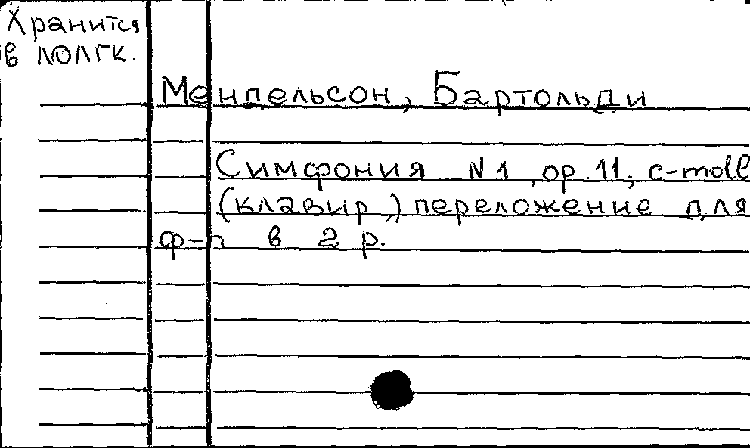 Хранится
в ЛОЛГК.
Мендельсон, Бартольди
Симфония N 1, ор. 11, c-moll
(клавир,) переложение для
ф-п в 2 р.